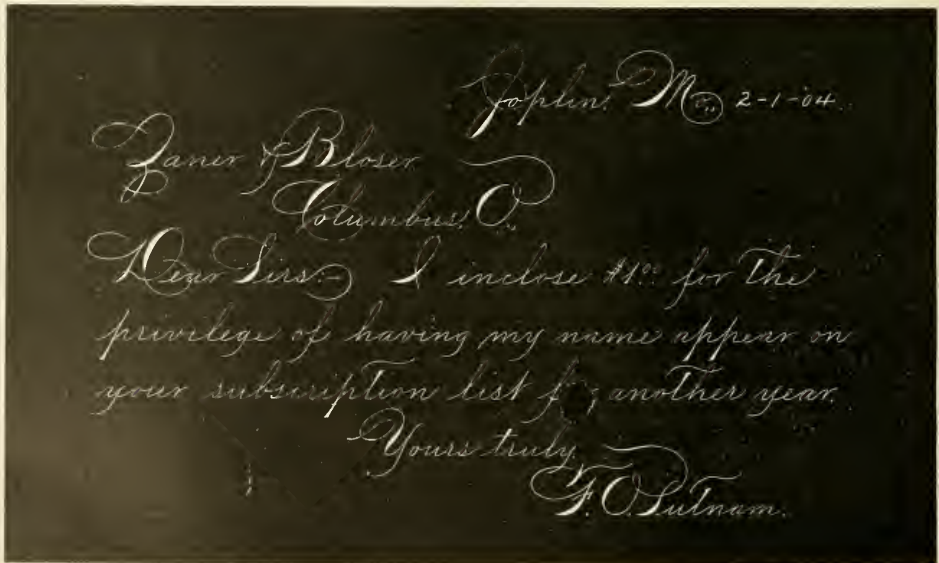 Joplin, Mo., 2-1-04.
Zaner & Bloser
Columbus, O.,
Dear Sirs:- I inclose $1.00 for the
privilege of having my name appear on
your subscription list for another year.
Yours truly,
F. O. Putnam.